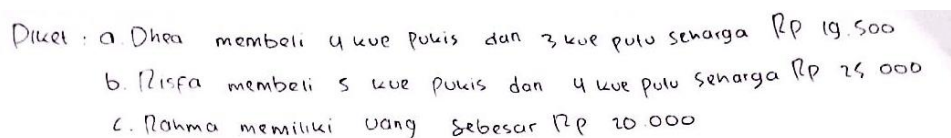 Diket : a. Dhea membeli 4 kue pukis dan 3 kue putu seharga Rp 19.500
b. Risfa membeli 5 kue pukis dan 4 kue putu seharga Rp 25 000
c. Rahma memiliki uang sebesar Rp 20.000